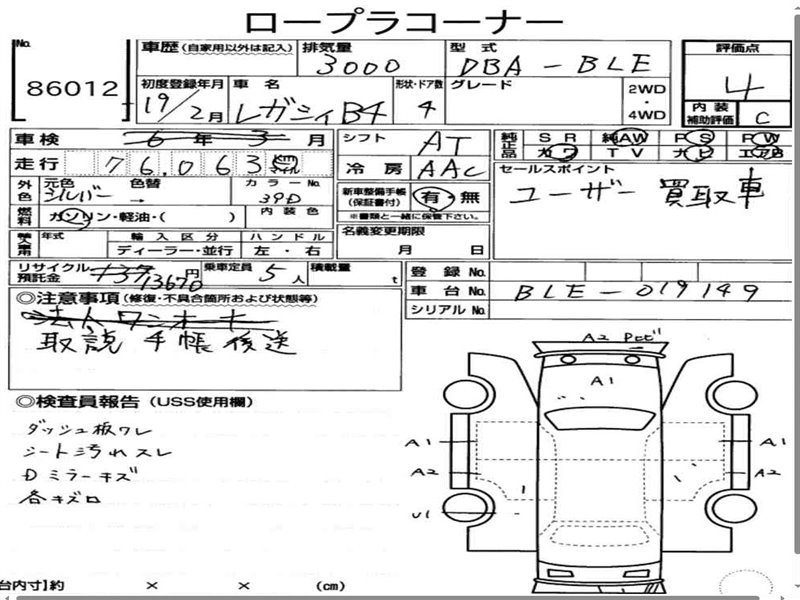 ロープラコーナー
No. 86012
車歴 (自家用以外は記入) 排気量 3000 型式 DBA-BLE 評価点 4
初度登録年月 19/2月 車名 レガシィB4 形状・ドア数 4 グレード 2WD・4WD 内装補助評価 C
車検 6年3月 シフト AT 純正品 SR 純AW PS PW
カワ TV ナビ エアB
走行 76,063 km マイル 冷房 AAC セールスポイント
外色 元色 シルバー 色替 → カラーNo. 39D 新車整備手帳(保証書付) 有・無 ユーザー買取車
燃料 ガソリン・軽油・( ) 内装色 ※書類と一緒に保管下さい。
輸入車用 年式 輸入区分 ハンドル 名義変更期限
ディーラー・並行 左・右 月 日
リサイクル預託金 13670円 乗車定員 5人 積載量 t 登録No.
車台No. BLE-019149
シリアルNo.
◎注意事項(修復・不具合箇所および状態等)
法人ワンオーナー
取説 手帳後送
◎検査員報告(USS使用欄)
ダッシュ板ワレ
シート汚れスレ
Dミラーキズ
各キズ
A2 Pとビ
A1
A1 A1
A2 A2
U1
台内寸】約 × × (cm)